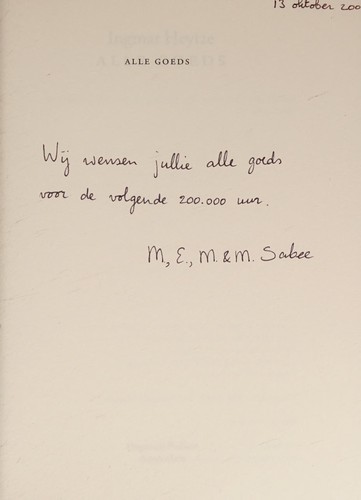 13 oktober 200
ALLE GOEDS
Wij wensen jullie alle goeds
voor de volgende 200.000 uur.
M, E., M. & M. Sabee